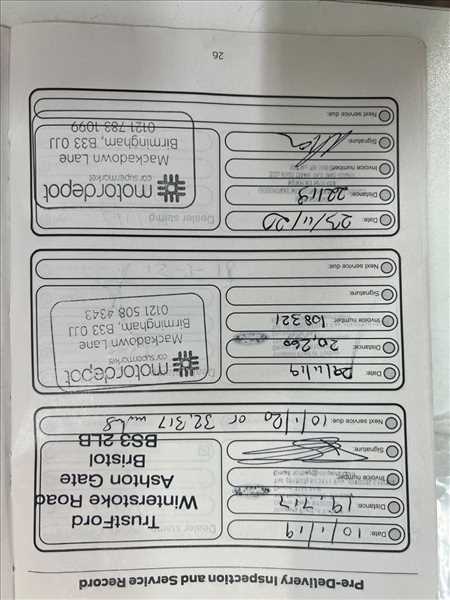 Pre-Delivery Inspection and Service Record
Date: 10/1/19
Distance: 19,717
Invoice number:
Signature:
Next service due: 10/1/20 or 32,317 miles
TrustFord
Winterstoke Road
Ashton Gate
Bristol
BS3 2LB
Date: 29/11/19
Distance: 20,260
Invoice number: 108321
Signature:
Next service due:
motordepot
car supermarkets
Mackadown Lane
Birmingham, B33 0JJ
0121 508 4343
Date: 23/11/20
Distance: 22113
Invoice number:
Signature:
Next service due:
motordepot
car supermarket
Mackadown Lane
Birmingham, B33 0JJ
0121 783 1099
Dealer stamp
26